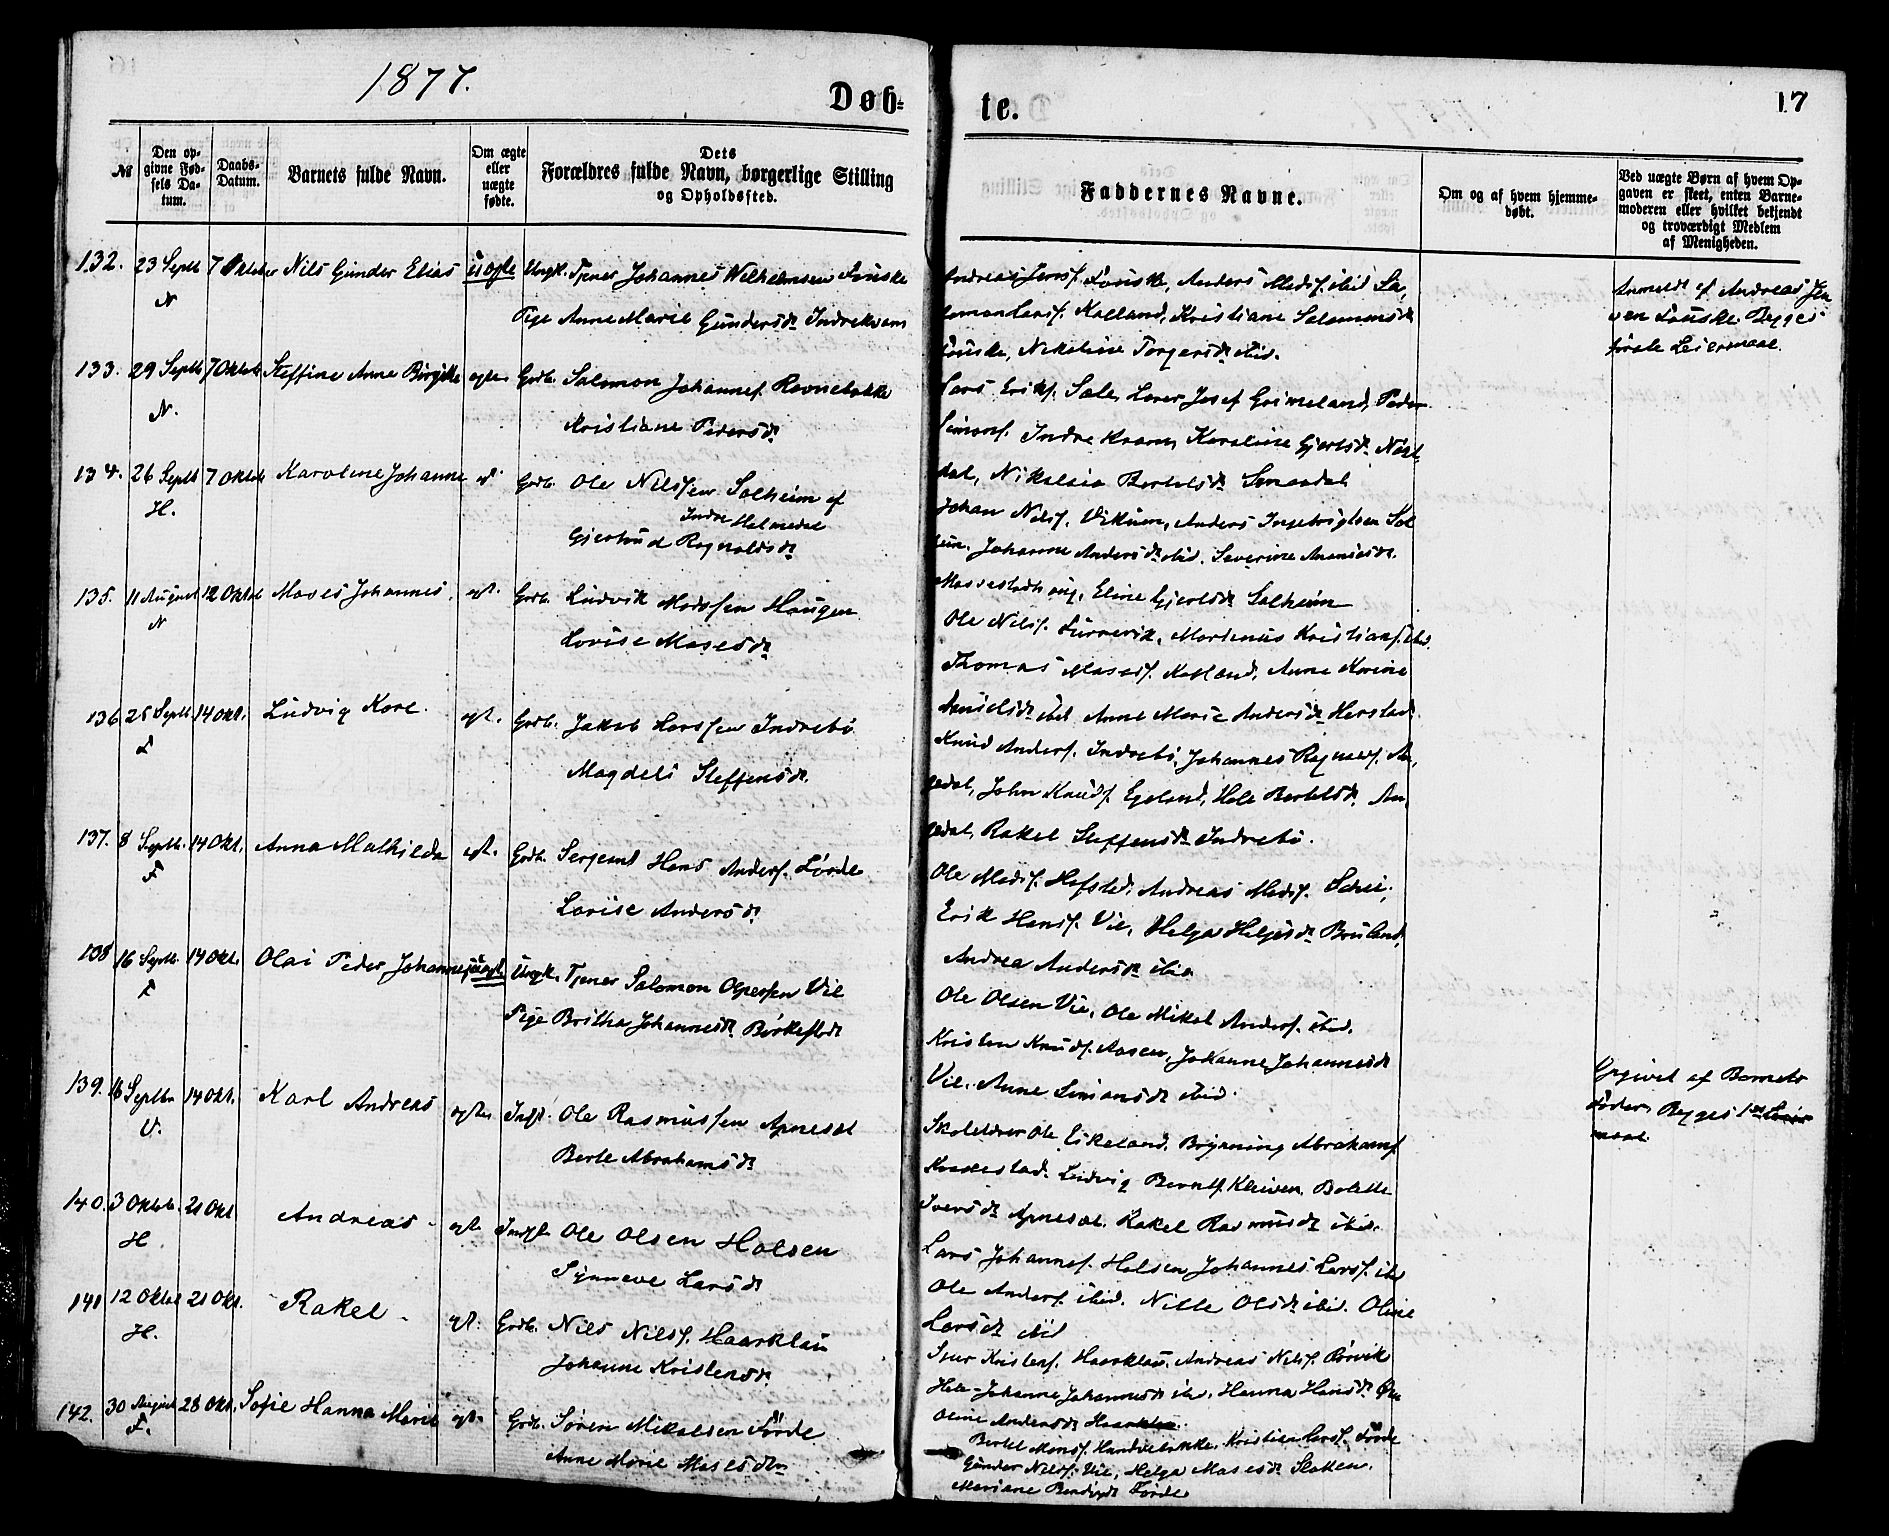 1877.
Døb-
te.
17
No
Den op-
givne Fød-
sels Da-
tum.
Daabs-
Datum.
Barnets fulde Navn.
Om ægte
eller
uægte
fødte.
Dets
Forældres fulde Navn, borgerlige Stilling
og Opholdssted.
Faddernes Navne.
Om og af hvem hjemme-
døbt.
Ved uægte Børn af hvem Op-
gaven er skeet, enten Barne-
moderen eller hvilket bekjendt
og troværdigt Medlem
af Menigheden.
132. 23 Septb 7 Oktober Nils Gunder Elias uægte Ungk. Tjener Johannes Wilhelmsen Fouske
N
Pige Anne Marie Gundersdr Indrekvam
Andreas Jensf. Fouske, Anders Madsf. ibid Sa,
lomon Larsf. Kalland, Kristiane Salomonsdr
Fouske, Nikoline Torgersdr ibid.
Anmeldt af Andreas Jen
sen Fouske. Begges
første Leiermaal
133. 29 Septb 7 Oktob Steffine Anna Birgitte ægte Grdb. Salomon Johannesf. Ravnebakke
N.
Kristiane Pedersdr
Lars Eriksf. Sæle, Lærer Josef Grimeland, Peder
Simonf. Indre Kvam, Karoline Gjertsdr Nast
dal, Nikolaia Bertelsdr Smaadal
134. 26 Septb 7 Oktob Karoline Johanne d° Grdb. Ole Nilssen Solheim af
H.
Indre Holmedal
Gjertrud Ragnaldsdr
Johan Nilsf. Vikum, Anders Ingebrigtsen Sol
heim, Johanne Andersdr ibid. Severine Ananiasdr
Massestadhoug, Eline Gjertsdr Solheim
135. 11 August 12 Oktob Moses Johannes, ægt. Grdb. Ludvik Madssen Haugen
N
Lovise Mosesdr
Ole Nilsf. Furrevik, Martinus Kristiansf. ibid.
Thomas Mosesf. Kalland, Anne Karine
Danielsdr ibid Anne Marie Andersdr Herstad
136 25 Septb. 14 Okt. Ludvig Kore. ægt. Grdb. Jakob Larssen Indrebø
F
Magdeli Steffensdr.
Knud Andersf. Indrebø, Johannes Ragnaldsf. An,
gedal, John Knudsf. Espeland, Hole Bertelsdr. An,
gedal, Rakel Steffensdr Indrebø.
137. 8 Septb. 14 Okt. Anna Mathilda ægt. Grdb. Sergeant Hans Andersf. Førde
F
Lovise Andersdr
Ole Madsf. Hafstad, Andreas Madsf. Schei,
Erik Hansf. Vie, Helga Helgesdr Bruland,
Andrea Andersdr ibid
138 16 Septb. 14 Okt. Olai Peder Johannes uægt. Ungk. Tjener Salomon Olsen Vie
F
Pige Britha Johannesdr. Birkeflot
Ole Olsen Vie, Ole Mikal Andersf. ibid.
Kristen Knudsf. Aasen, Johanne Johannesdr
Vie. Anne Simonsdr ibid.
Opgivet af Barnets
Fader, Begges 1ste Leier
maal
139. 16 Septbr 14 Okt. Karl Andreas ægte Indst. Ole Rasmussen Apnesæt
V.
Berte Abrahamsdr
Skolelærer Ole Eikeland, Brynning Abrahamsf.
Kvedestad. Ludvig Berntsf. Kleiven, Bolette
Iversdr Apnesæt. Rakel Rasmusdr ibid.
140. 3 Oktob. 21 Okt Andreas ægt. Indst. Ole Olsen Holsen
H.
Synneve Larsdr
Lars Johannesf. Holsen, Johannes Larsf. ibid
Ole Andersf. ibid. Nille Olsdr ibid. Oline
Larsdr ibid
141 12 Oktob 21 Okt. Rakel ægt. Grdb. Nils Nilsf. Haarklau
H.
Johanne Kristensdr
Iver Kristensf. Haarklau. Andreas Nilsf. Rørvik
Johanne Johannesdr ibid. Hanna Hansdr
Oline Andersdr Haarklau.
142. 30 August 28 Okt. Sofie Hanna Marie ægt. Grdb. Søren Mikalsen Førde
F.
Anne Marie Mosesdtr
Bertel Monsf. Hundvebakke, Kristian Larsf. Førde
Gunder Nilsf. Vie, Helga Mosesdr Slatten.
Mariane Bendixdr Førde